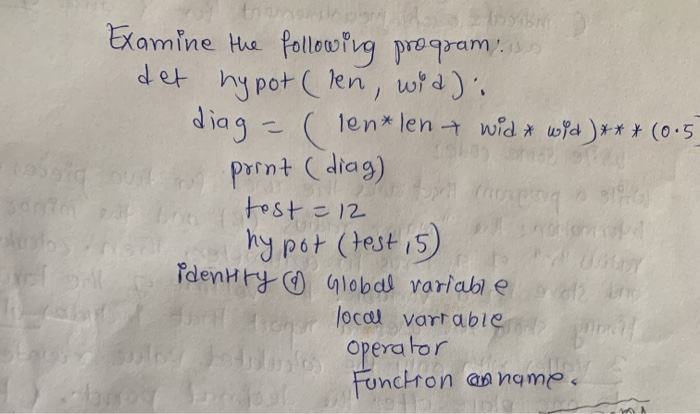 Examine the following program:
def hypot(len, wid):
diag = (len*len + wid * wid)***(0.5
print (diag)
test = 12
hypot (test,5)
identity @ Global variable
local variable
operator
Function name.